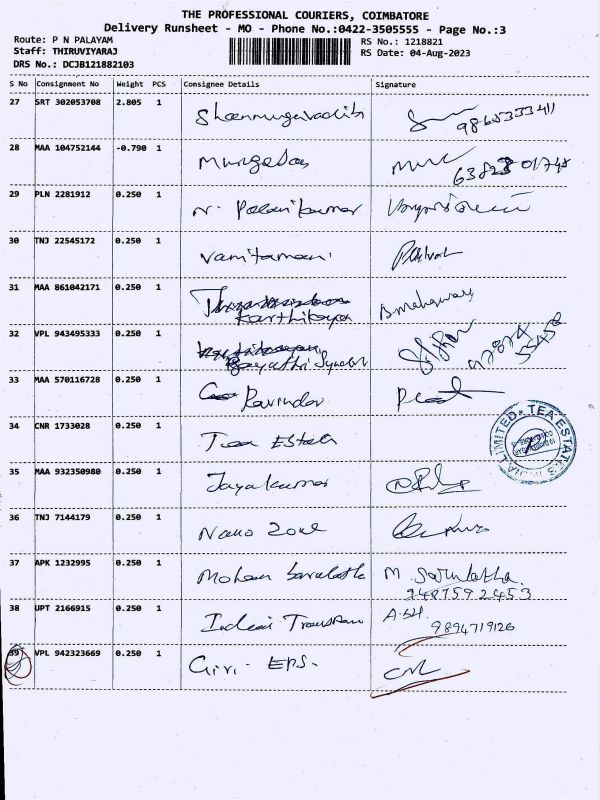 THE PROFESSIONAL COURIERS, COIMBATORE
Delivery Runsheet - MO - Phone No.:0422-3505555 - Page No.:3
Route: P N PALAYAM
Staff: THIRUVIYARAJ
DRS No.: DCJB121882103
RS No.: 1218821
RS Date: 04-Aug-2023
S No Consignment No Weight PCS Consignee Details Signature
27 SRT 302053708 2.805 1
28 MAA 104752144 -0.790 1 Murugedas
29 PLN 2281912 0.250 1 N. Palanikumar
30 TNJ 22545172 0.250 1 Vanitamani
31 MAA 861042171 0.250 1
Karthikeya
32 VPL 943495333 0.250 1
33 MAA 570116728 0.250 1 Ravindar
34 CNR 1733028 0.250 1 Tea Estate
LIMITED TEA ESTATES
35 MAA 932350980 0.250 1 Jayakumar
36 TNJ 7144179 0.250 1 Nano Zone
37 APK 1232995 0.250 1 Mohan M. Sarulatha
9487592453
38 UPT 2166915 0.250 1 Indian A.SH.
9894719126
39 VPL 942323669 0.250 1 Giri. EPS.